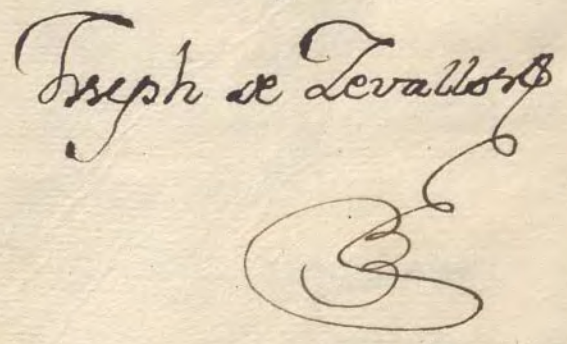 Joseph de Zevallos